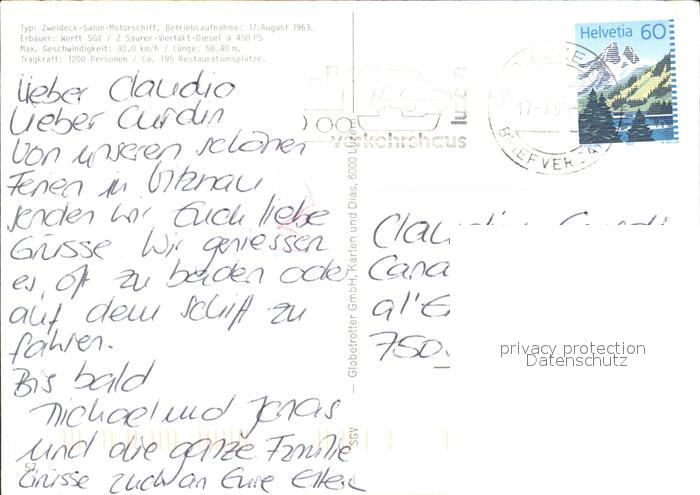 Typ: Zweideck-Salon-Motorschiff, Betriebsaufnahme: 17. August 1963.
Erbauer: Werft SGV / 2 Saurer-Viertakt-Diesel à 450 PS
Max. Geschwindigkeit: 30,0 km/h / Länge: 58,40 m.
Tragkraft: 1200 Personen / Ca. 195 Restaurationsplätze.
Lieber Claudio
Lieber Curdin
Von unseren schönen
Ferien in Vitznau
senden wir Euch liebe
Grüsse Wir geniessen
es, oft zu baden oder
auf dem Schiff zu
fahren.
Bis bald
Michael und Jonas
und die ganze Familie
Grüsse auch an Eure Eltern
57
SGV — Globetrotter GmbH, Karten und Dias, 6000 Luzern
verkehrshaus
Helvetia 60
BRIEFVER
Claudio Curdin
Cana
al'E
750
privacy protection
Datenschutz